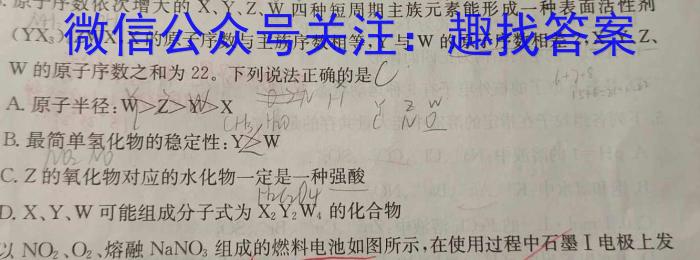 原子序数依次增大的 X、Y、Z、W 四种短周期主族元素能形成一种表面活性剂
微信公众号关注：趣找答案
W 的原子序数之和为 22。下列说法正确的是 C.
A. 原子半径:W>Z>Y>X
B. 最简单氢化物的稳定性:Y>W
C. Z 的氧化物对应的水化物一定是一种强酸
D. X、Y、W 可能组成分子式为 X₂Y₂W₄ 的化合物
以 NO₂、O₂、熔融 NaNO₃ 组成的燃料电池如图所示,在使用过程中石墨 I 电极上发
Y Z W
C N O
CH₄ H₂O
NO₂ NO
H₂C₂O₄
6+7+8